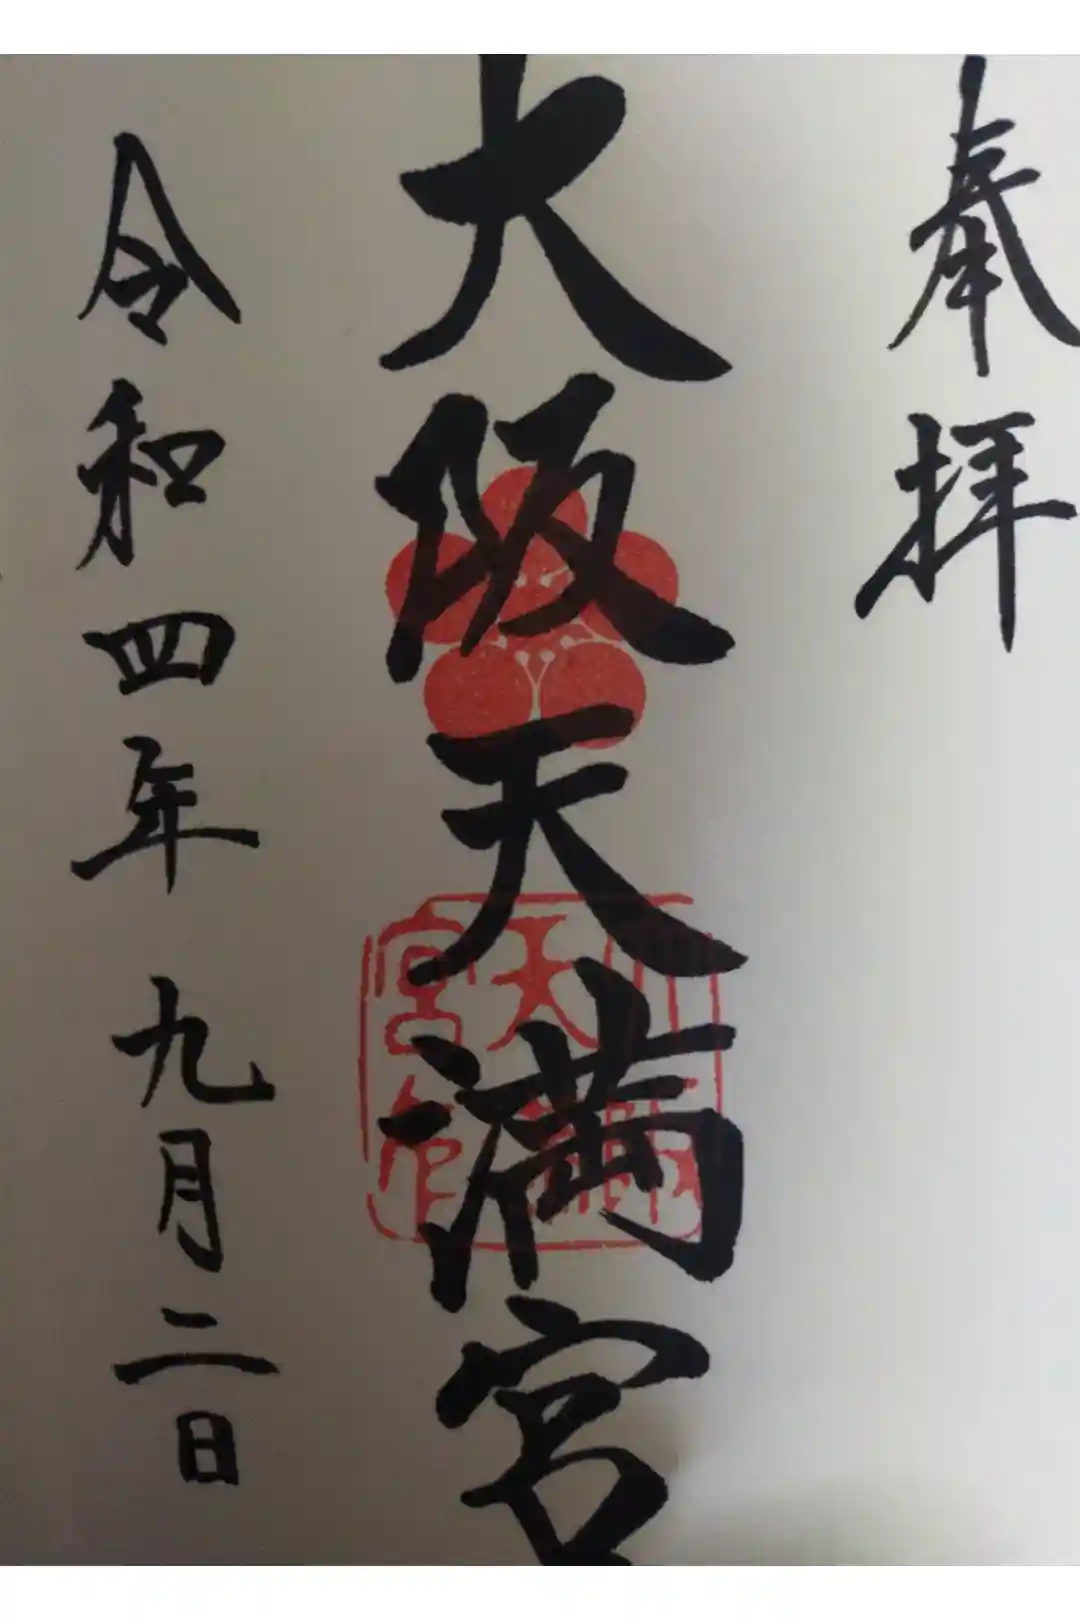 奉拝
大阪天満宮
令和四年九月二日